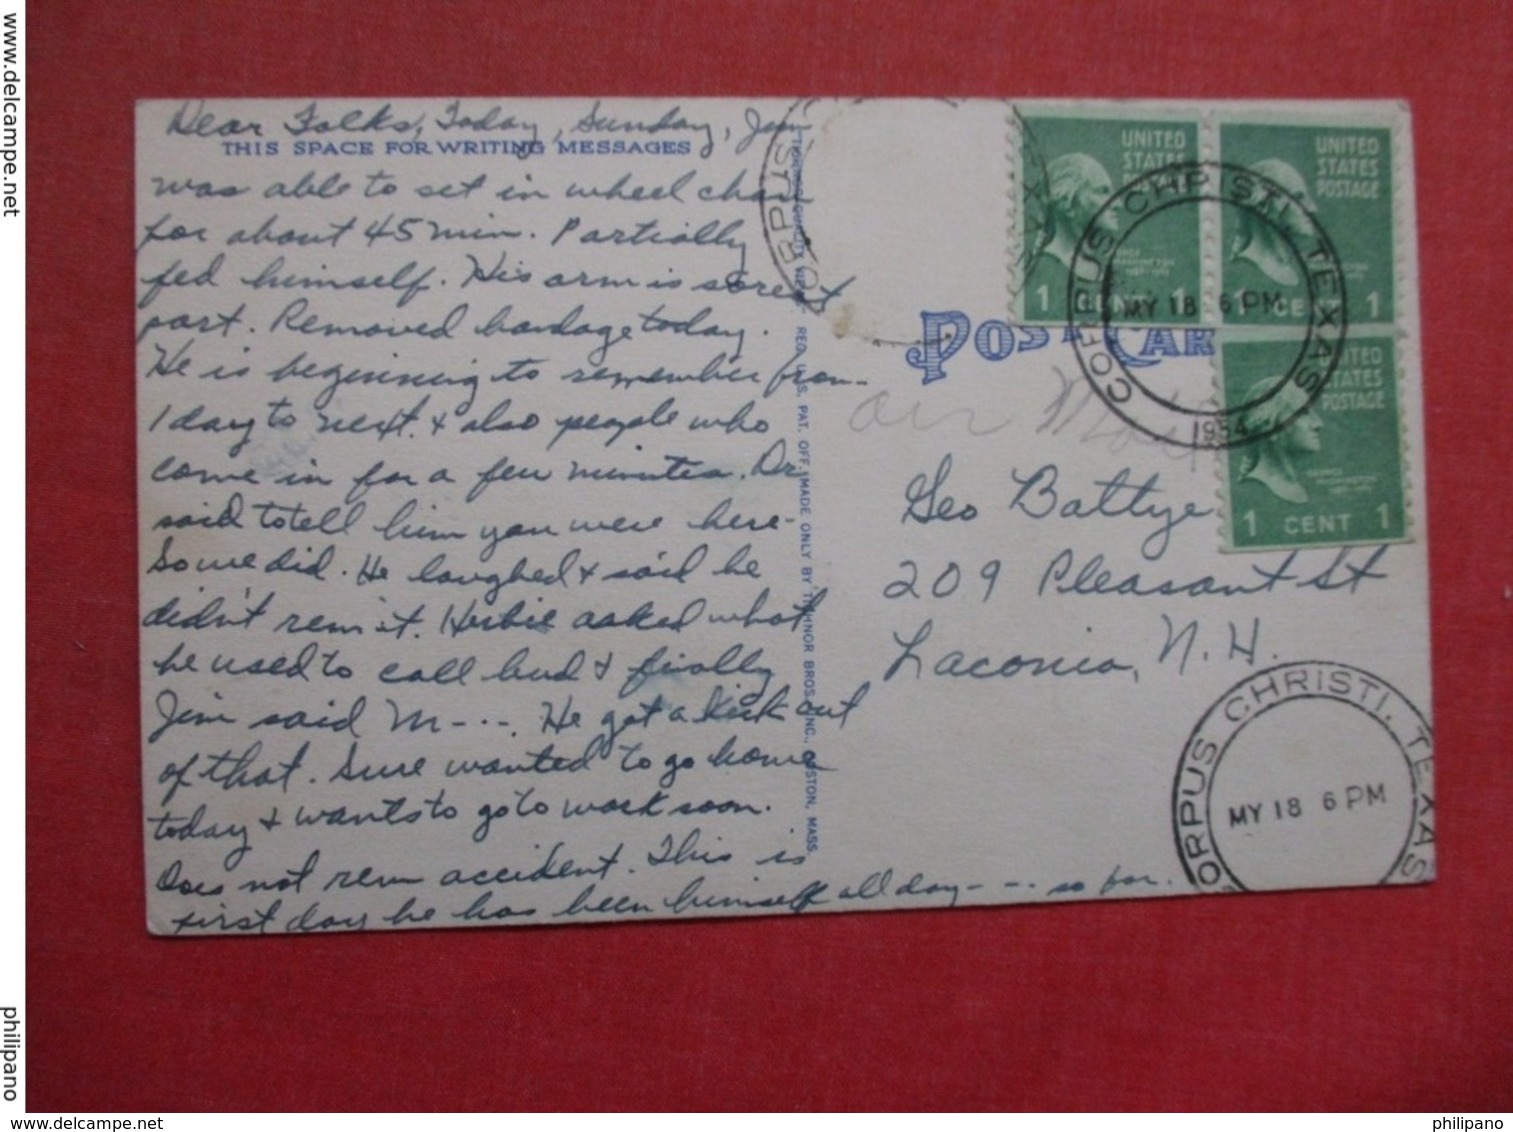 Dear Folks, Today, Sunday, Jim
THIS SPACE FOR WRITING MESSAGES
was able to set in wheel chair
for about 45 min. Partially
fed himself. His arm is sorest
part. Removed bandage today.
He is beginning to remember from
1 day to next & also people who
come in for a few minutes. Dr.
said to tell him you were here-
So we did. He laughed & said he
didn't rem it. Herbie asked what
he used to call bud & finally
Jim said M---. He got a kick out
of that. Sure wanted to go home
today & wants to go to work soon.
Does not rem accident. This is
first day he has been himself all day--- so far.
RED. U.S. PAT. OFF. MADE ONLY BY TICHNOR BROS. INC., BOSTON, MASS.
POST CARD
Air Mail
Geo Battye
209 Pleasant St
Laconia, N.H.
UNITED STATES POSTAGE
1 CENT 1
UNITED STATES POSTAGE
1 CENT 1
UNITED STATES POSTAGE
1 CENT 1
CORPUS CHRISTI, TEXAS
MY 18 6 PM
1954
CORPUS CHRISTI, TEXAS
MY 18 6 PM
www.delcampe.net
philipano
philipano